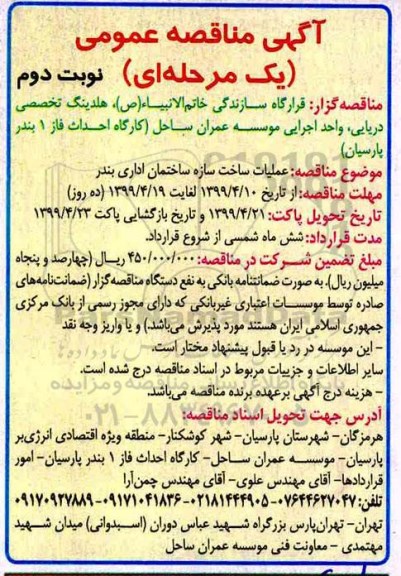 آگهی مناقصه عمومی
(یک مرحله‌ای) نوبت دوم
مناقصه‌گزار: قرارگاه سازندگی خاتم‌الانبیاء(ص)، هلدینگ تخصصی
دریایی، واحد اجرایی موسسه عمران ساحل (کارگاه احداث فاز ۱ بندر
پارسیان)
موضوع مناقصه: عملیات ساخت سازه ساختمان اداری بندر
مهلت مناقصه: از تاریخ ۱۳۹۹/۴/۱۰ لغایت ۱۳۹۹/۴/۱۹ (ده روز)
تاریخ تحویل پاکت: ۱۳۹۹/۴/۲۱ و تاریخ بازگشایی پاکت ۱۳۹۹/۴/۲۳
مدت قرارداد: شش ماه شمسی از شروع قرارداد.
مبلغ تضمین شرکت در مناقصه: ۴۵۰/۰۰۰/۰۰۰ ریال (چهارصد و پنجاه
میلیون ریال). به صورت ضمانتنامه بانکی به نفع دستگاه مناقصه‌گزار (ضمانت‌نامه‌های
صادره توسط موسسات اعتباری غیربانکی که دارای مجوز رسمی از بانک مرکزی
جمهوری اسلامی ایران هستند مورد پذیرش می‌باشد.) و یا واریز وجه نقد
– این موسسه در رد یا قبول پیشنهاد مختار است.
سایر اطلاعات و جزییات مربوط در اسناد مناقصه درج شده است.
– هزینه درج آگهی برعهده برنده مناقصه می‌باشد.
آدرس جهت تحویل اسناد مناقصه:
هرمزگان– شهرستان پارسیان– شهر کوشکنار– منطقه ویژه اقتصادی انرژی‌بر
پارسیان– موسسه عمران ساحل– کارگاه احداث فاز ۱ بندر پارسیان– امور
قراردادها– آقای مهندس علوی– آقای مهندس چمن‌آرا
تلفن: ۰۷۶۴۴۶۲۷۰۴۷–۰۲۱۸۱۴۴۴۹۰۵–۰۹۱۷۱۰۴۱۸۳۶–۰۹۱۷۰۹۲۷۸۸۹
تهران– تهران‌پارس بزرگراه شهید عباس دوران (اسبدوانی) میدان شهید
مهتمدی – معاونت فنی موسسه عمران ساحل